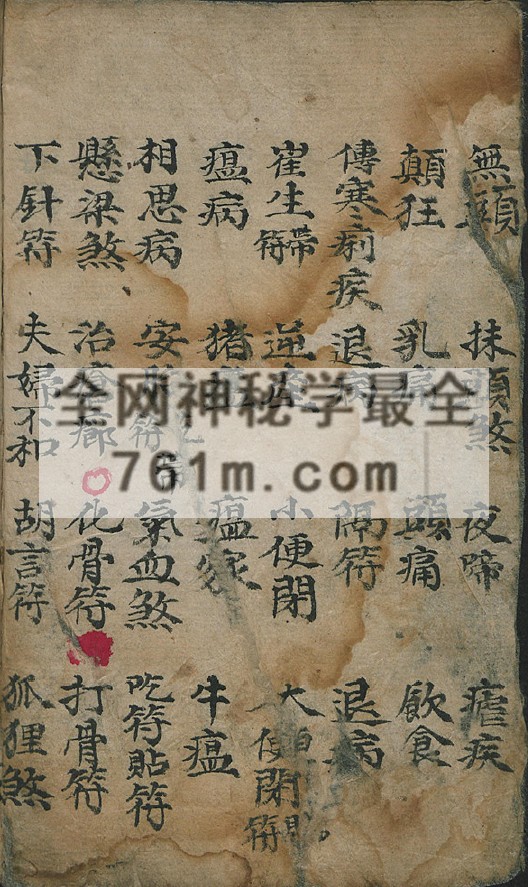 無頭 抹頭煞 夜啼 瘧疾
顛狂 乳 頭痛 飲食
傳寒痢疾 退病 隔符 退病
崔生帶符 逆 小便閉 大便閉符
瘟病 猪 瘟 牛瘟
相思病 安 符 氣血煞 吃符貼符
懸梁煞、 治 化骨符 打骨符
下針符 夫婦不和 胡言符 狐狸煞
全网神秘学最全
761m.com